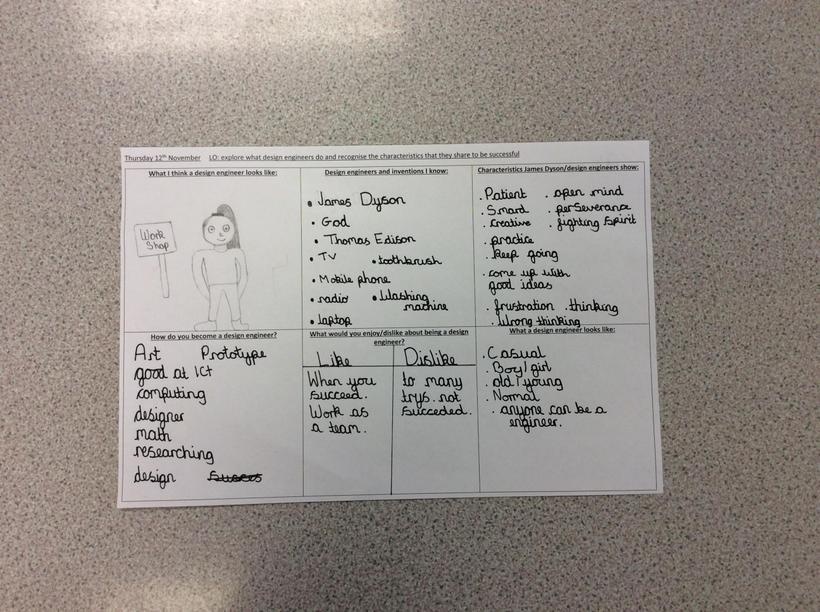 Thursday 12th November LO: explore what design engineers do and recognise the characteristics that they share to be successful
What I think a design engineer looks like:
Work
Shop
Design engineers and inventions I know:
• James Dyson
• God
• Thomas Edison
• TV • toothbrush
• Mobile phone
• radio • Washing
machine
• laptop
Characteristics James Dyson/design engineers show:
. Patient . open mind
. Smard . perSeverance
. Creative . fighting Spirit
. practice
. keep going
. come up with
good ideas
. frustration . thinking
. Wrong thinking
How do you become a design engineer?
Art Prototype
good at ICt
computing
designer
math
researching
design
What would you enjoy/dislike about being a design
engineer?
Like
When you
Succeed.
Work as
a team.
Dislike
to many
trys. not
Succeded.
What a design engineer looks like:
. Casual
. Boy/girl
. old/young
. Normal
. anyone can be a
engineer.